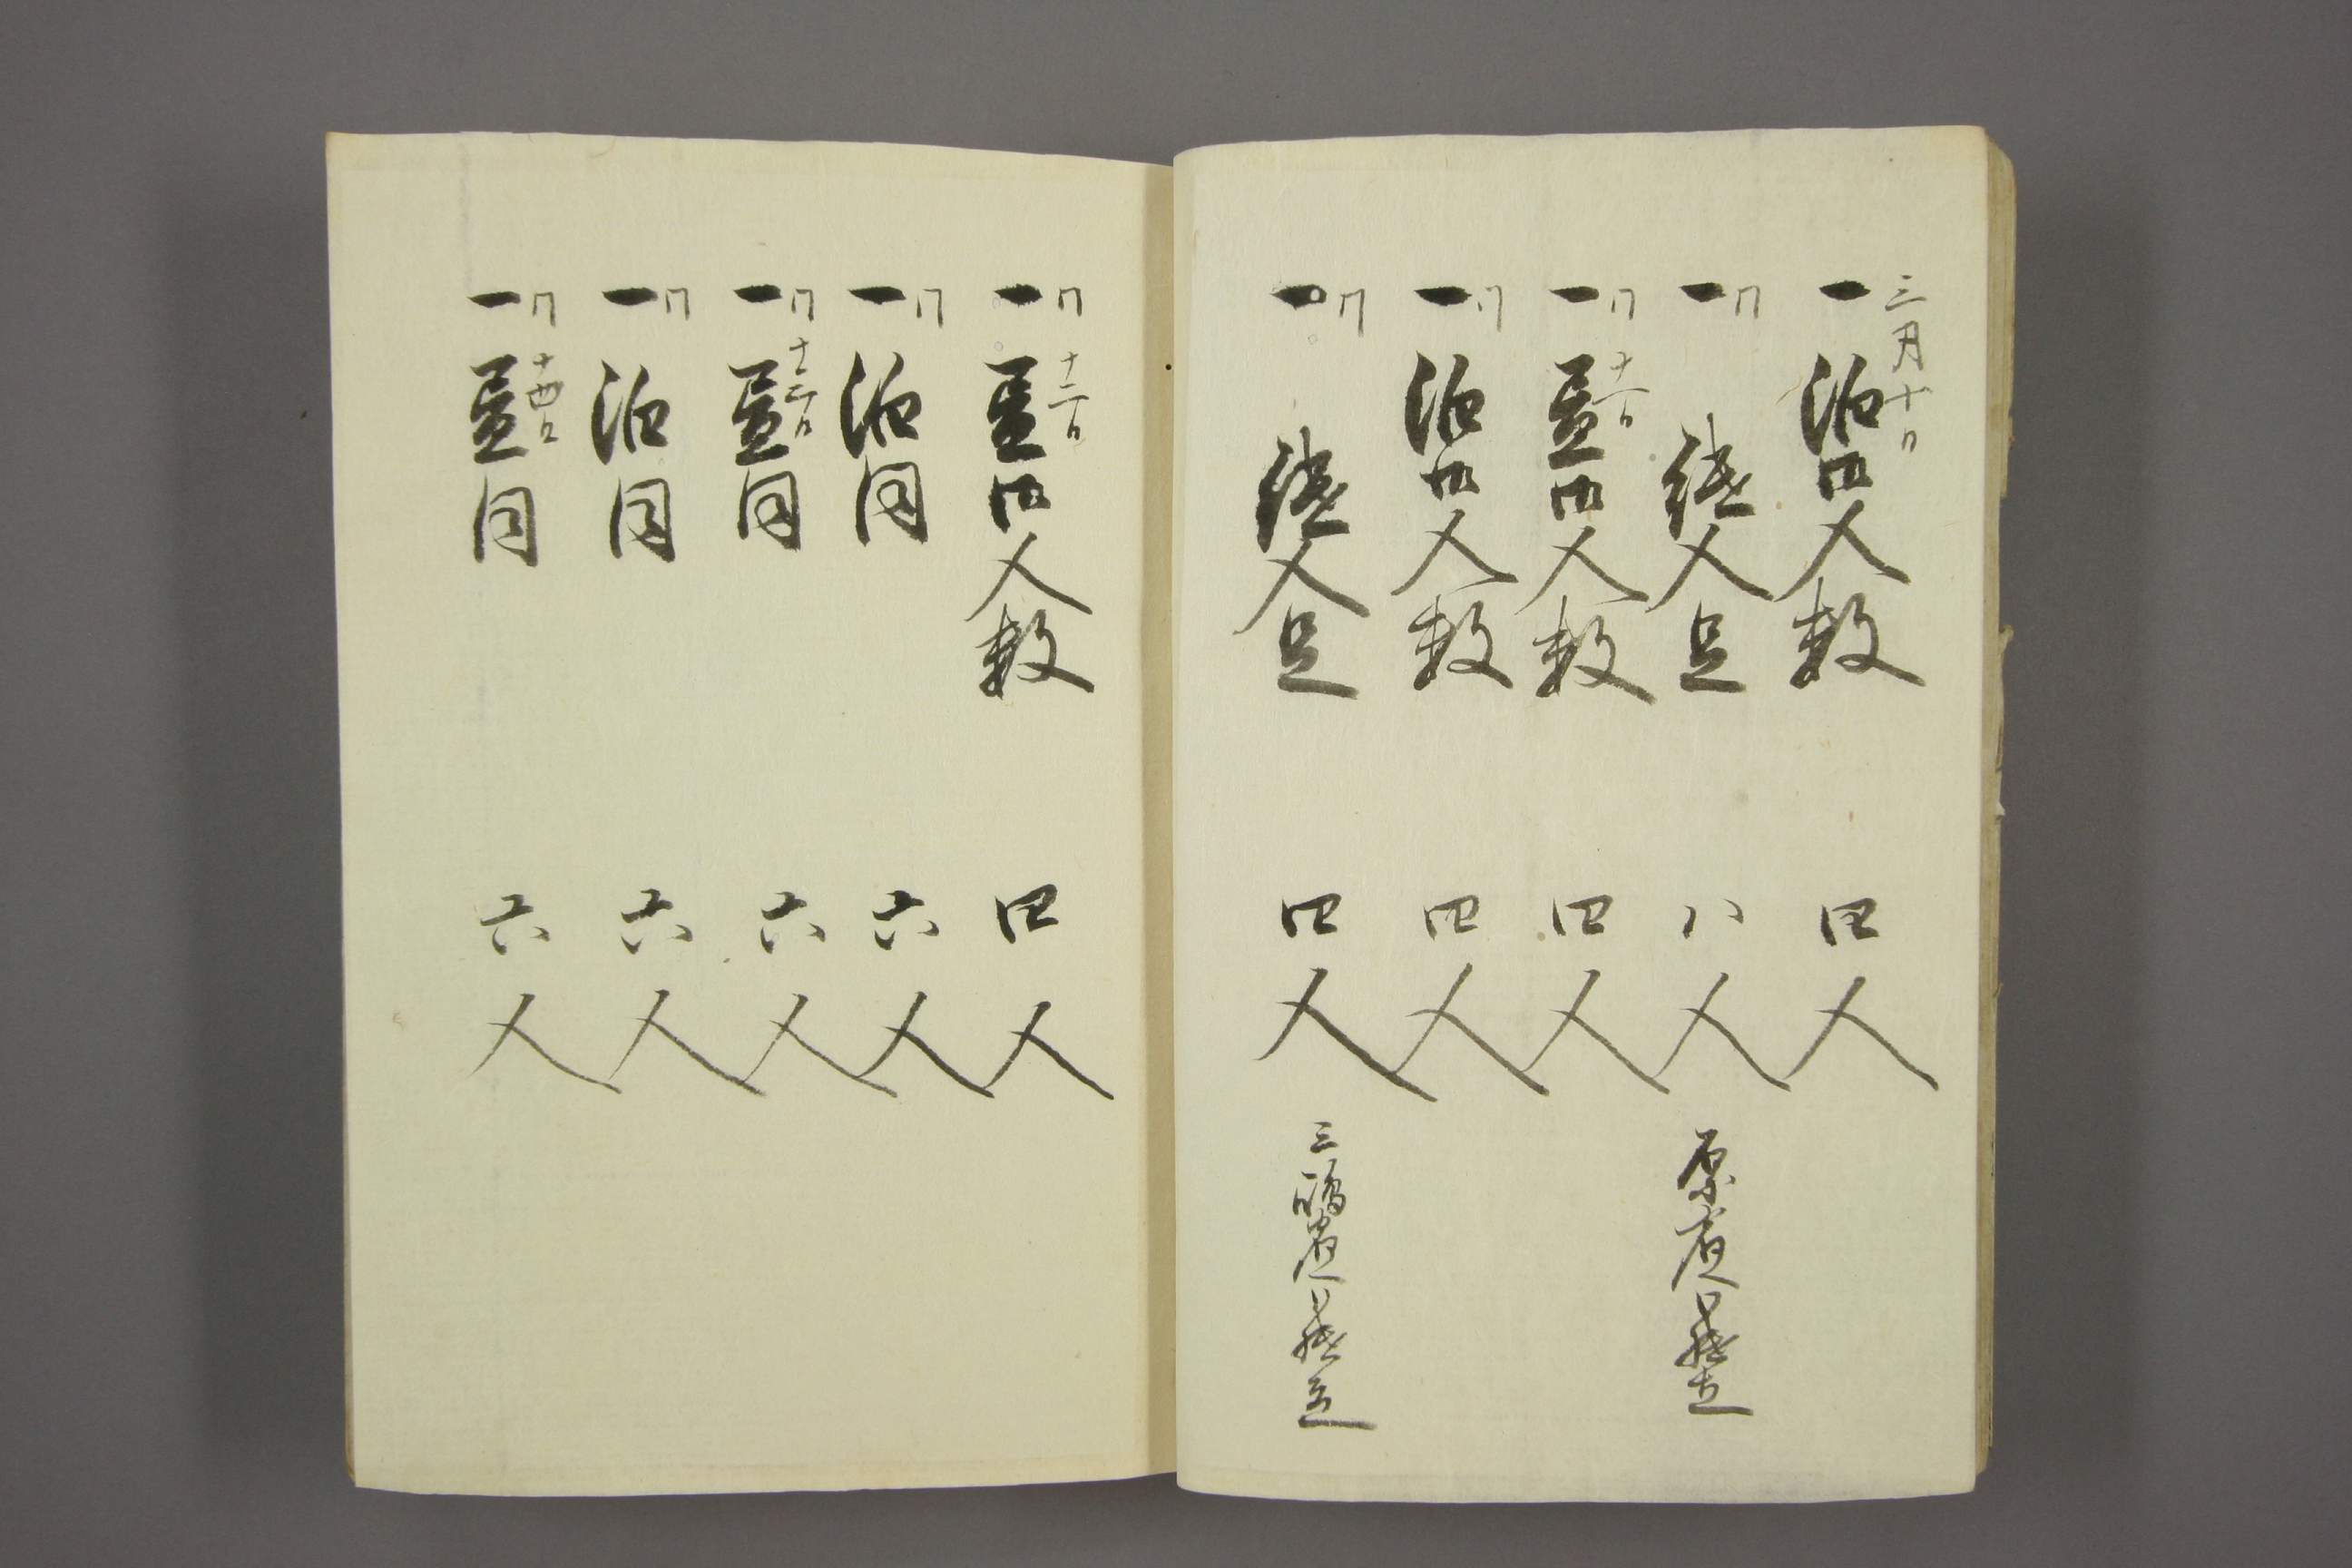 三月十日
一 泊御人数 四人
同
一 継人足 八人 原宿 継立
同十一日
一 昼御人数 四人
同
一 泊御人数 四人
同
一 継人足 四人 三嶋宿 継立
同十二日
一 昼御人数 四人
同
一 泊同 六人
同十三日
一 昼同 六人
同
一 泊同 六人
同十四日
一 昼同 六人